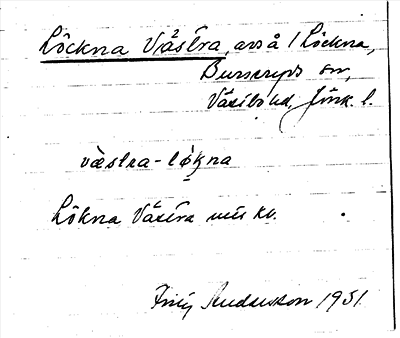 Löckna Västra, avs å / Löckna,
Burseryds sn,
Västbo hd, Jönk. l.
västra-løkna
Lökna Västra mtr kv.
Andersson 1951